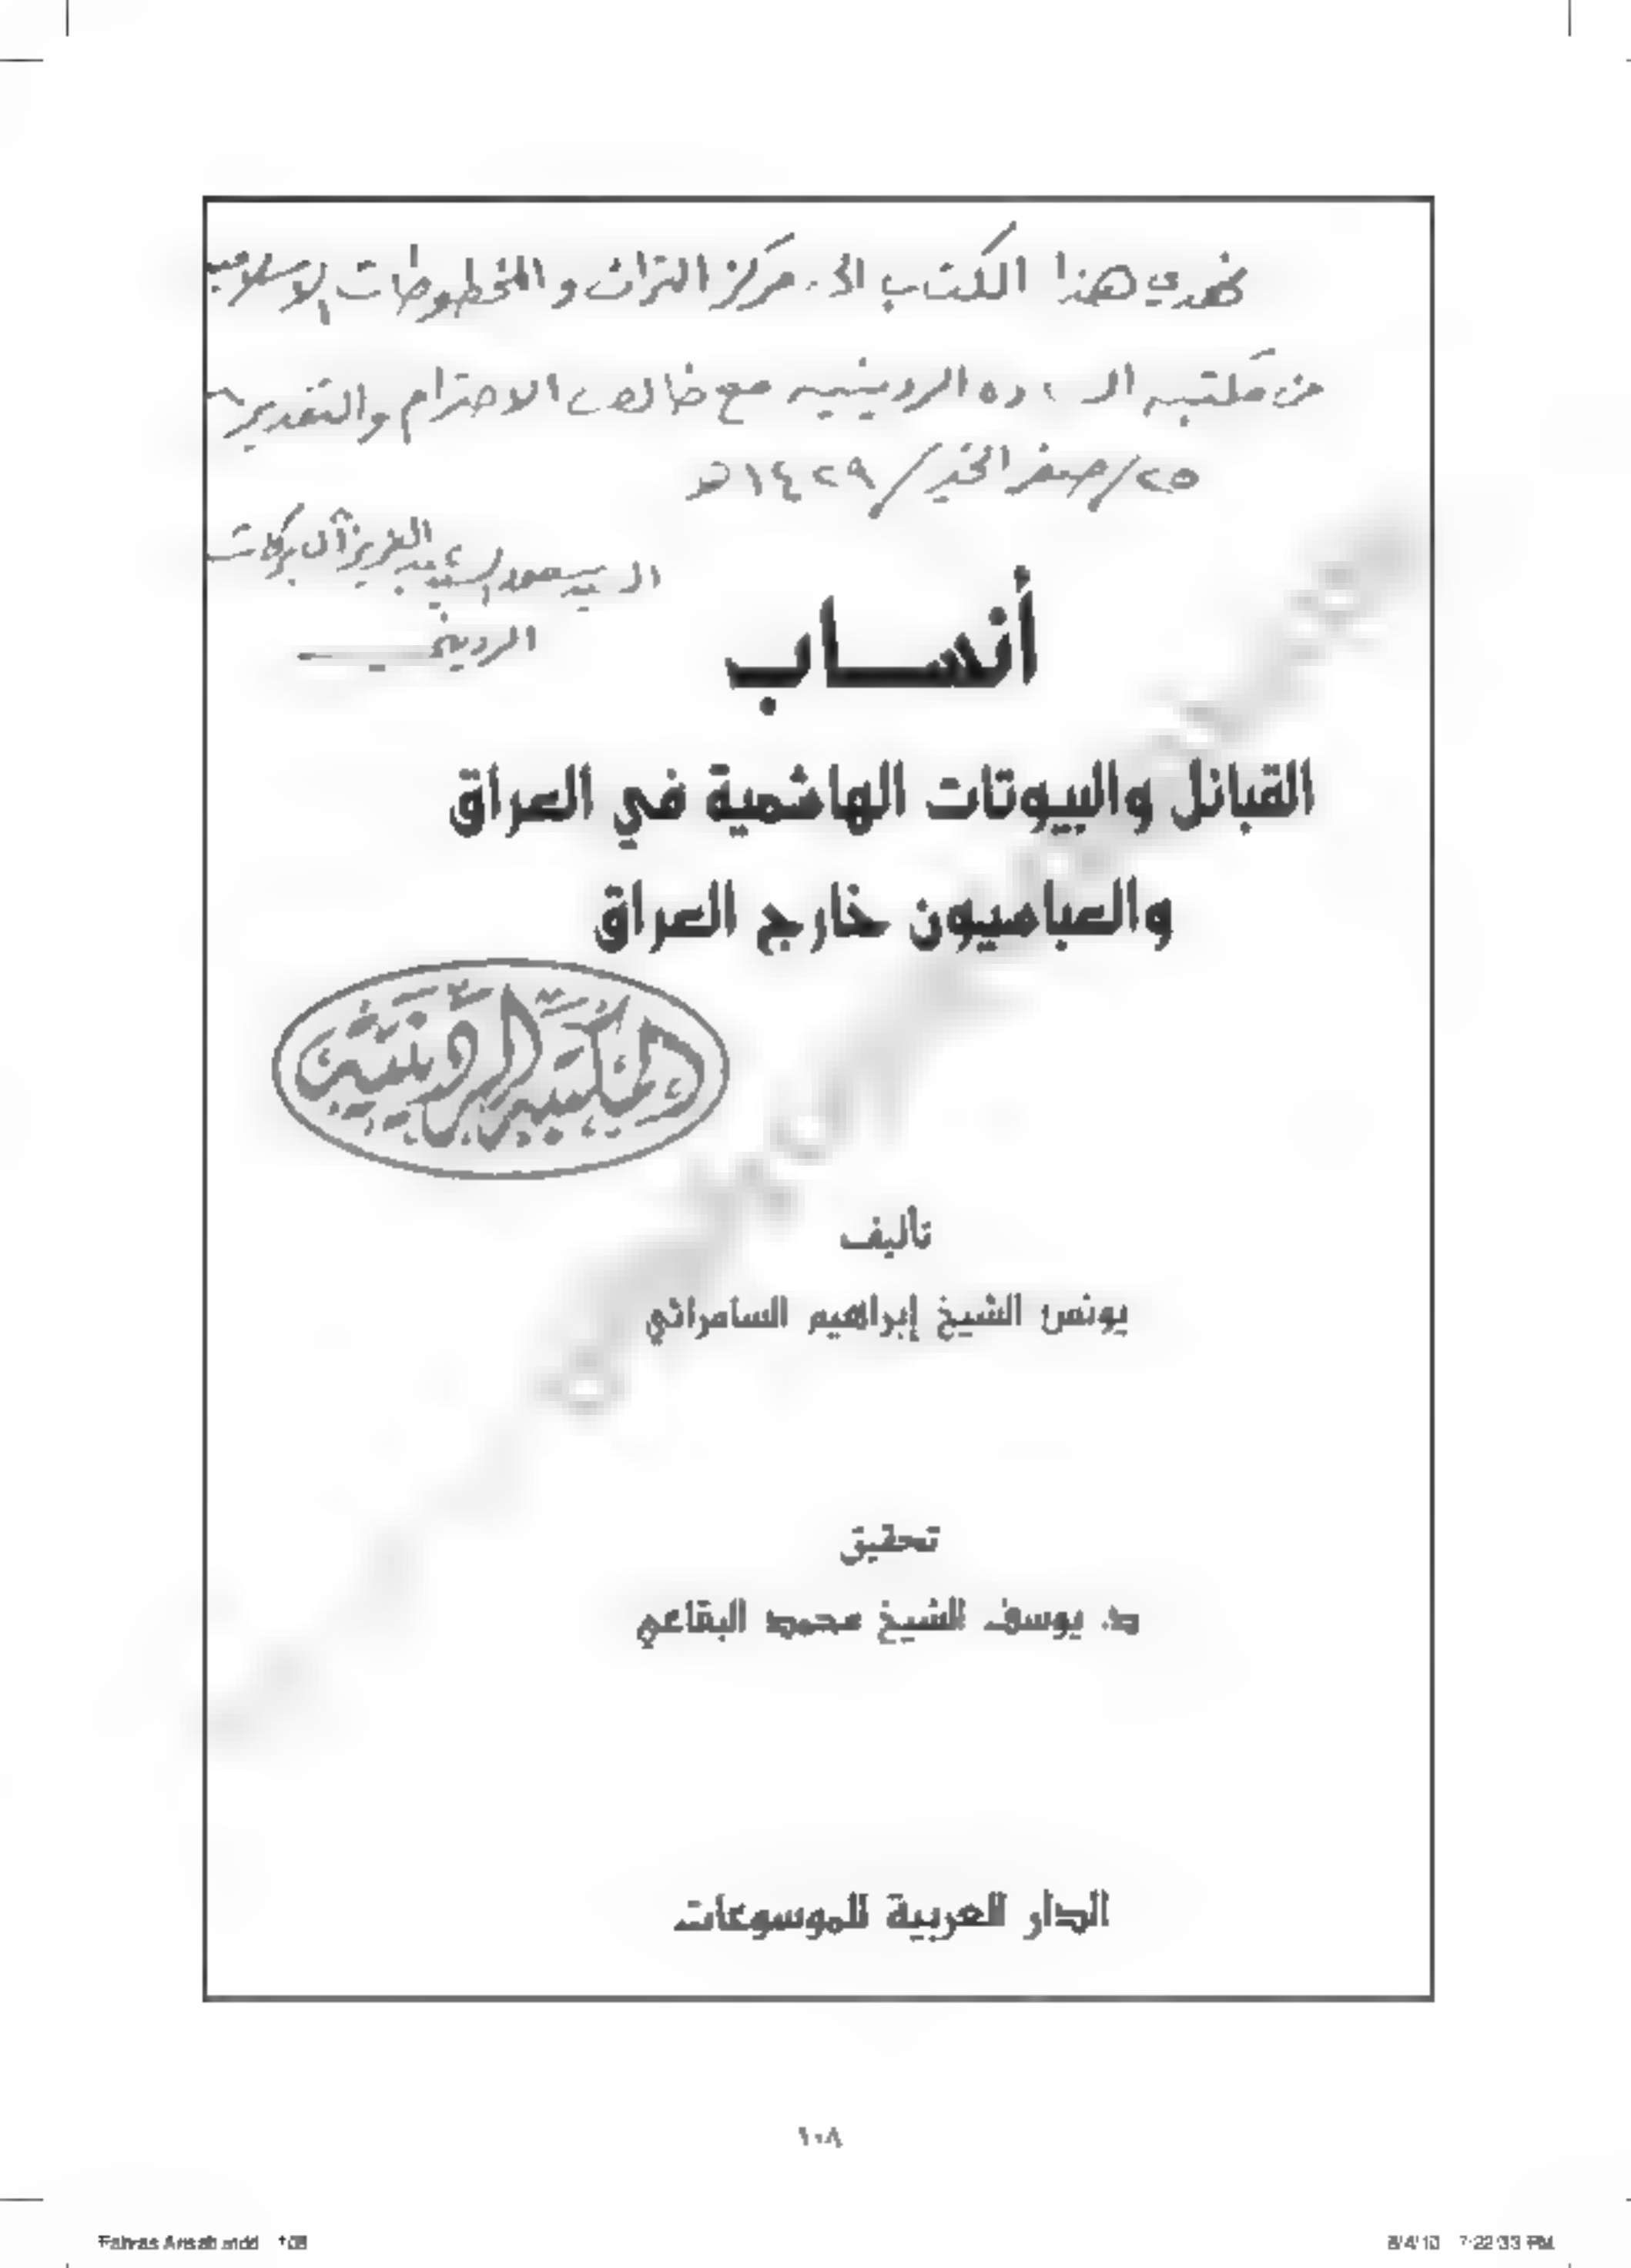 نهدي هذا الكتاب الى مركز التراث والمخطوطات الإسلاميه
من مكتبه الساده الردينيه مع خالص الاحترام والتقدير
٢٥/صفر الخير/١٤٢٩هـ
العزيز آل بركات
الرديني
أنساب
القبائل والبيوتات الهاشمية في العراق
والعباسيون خارج العراق
المكتبة الردينية
تأليف
يونس الشيخ إبراهيم السامرائي
تحقيق
د. يوسف الشيخ محمد البقاعي
الدار العربية للموسوعات
١٠٨
Fahras Ansab.indd 108
8/4/10 7:22:33 PM